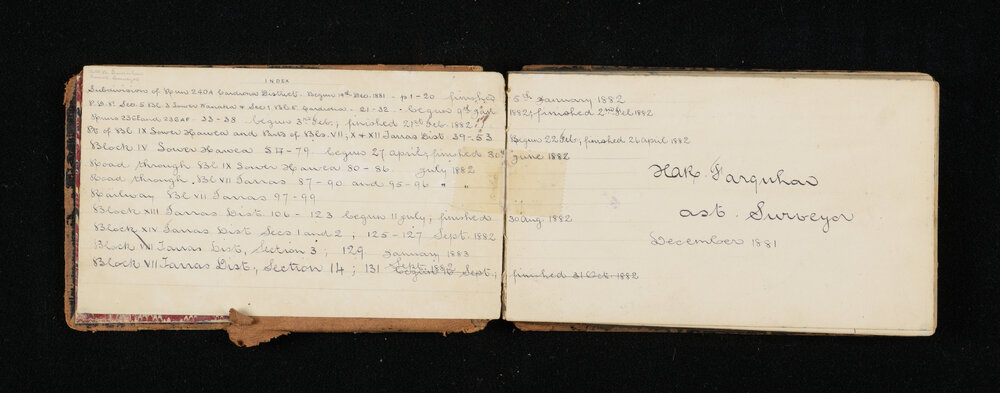 INDEX
Subdivision of Runs 240A Cardrona District. Begun 14th Dec. 1881 - p 1-20 finished 5th January 1882
Sec. 5 Bl. 2 Lower Wanaka & Sec. 1, Bl. 5 Cardrona - 21-32 - begun 9th Jan 1882, finished 2nd Feb 1882
Runs 236C and 236AF - 33-38 begun 3rd Feb; finished 21st Feb 1882
Pt of Bl IX Lower Hawea and Parts of Bls. VII, X & XII Tarras Dist 39-53 Begun 22 Feb; finished 26 April 1882
Block IV Lower Hawea 54-79 begun 27 April; finished 30 June 1882
Road through Bl IX Lower Hawea 80-86 July 1882
Road through Bl VII Tarras 87-90 and 95-96 " "
Railway Bl VII Tarras 97-99
Block XIII Tarras Dist. 106-123 begun 11 July; finished 30 Aug. 1882
Block XIV Tarras Dist Secs 1 and 2; 125-127 Sept 1882
Block VII Tarras Dist, Section 3; 129 January 1883
Block VII Tarras Dist, Section 14; 131 Sept 1882 begun Sept.; finished 31 Oct. 1882
Farquhar
ast. Surveyor
December 1881